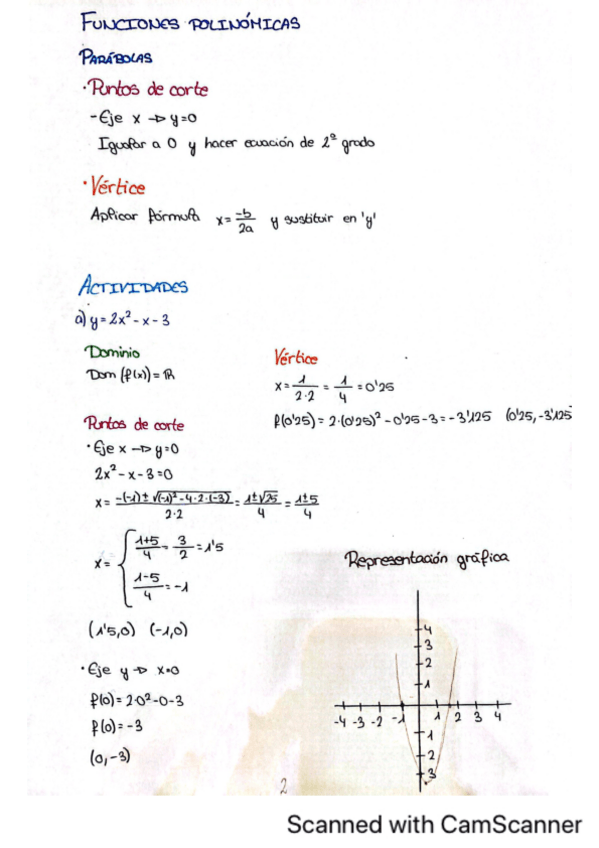 FUNCIONES POLINÓMICAS
PARÁBOLAS
· Puntos de corte
- Eje x → y=0
Igualar a 0 y hacer ecuación de 2º grado
· Vértice
Aplicar fórmula x = -b/2a y sustituir en 'y'
ACTIVIDADES
a) y = 2x² - x - 3
Dominio
Dom (f(x)) = ℝ
Vértice
x = 1/2·2 = 1/4 = 0'25
f(0'25) = 2·(0'25)² - 0'25 - 3 = -3'125 (0'25, -3'125
Puntos de corte
· Eje x → y=0
2x² - x - 3 = 0
x = -(-1) ± √(-1)² - 4·2·(-3) / 2·2 = 1±√25 / 4 = 1±5 / 4
x = { 1+5/4 = 3/2 = 1'5
1-5/4 = -1
(1'5, 0) (-1, 0)
· Eje y → x=0
f(0) = 2·0² - 0 - 3
f(0) = -3
(0, -3)
Representación gráfica
4
3
2
1
-4 -3 -2 -1 1 2 3 4
1
2
3
2
Scanned with CamScanner